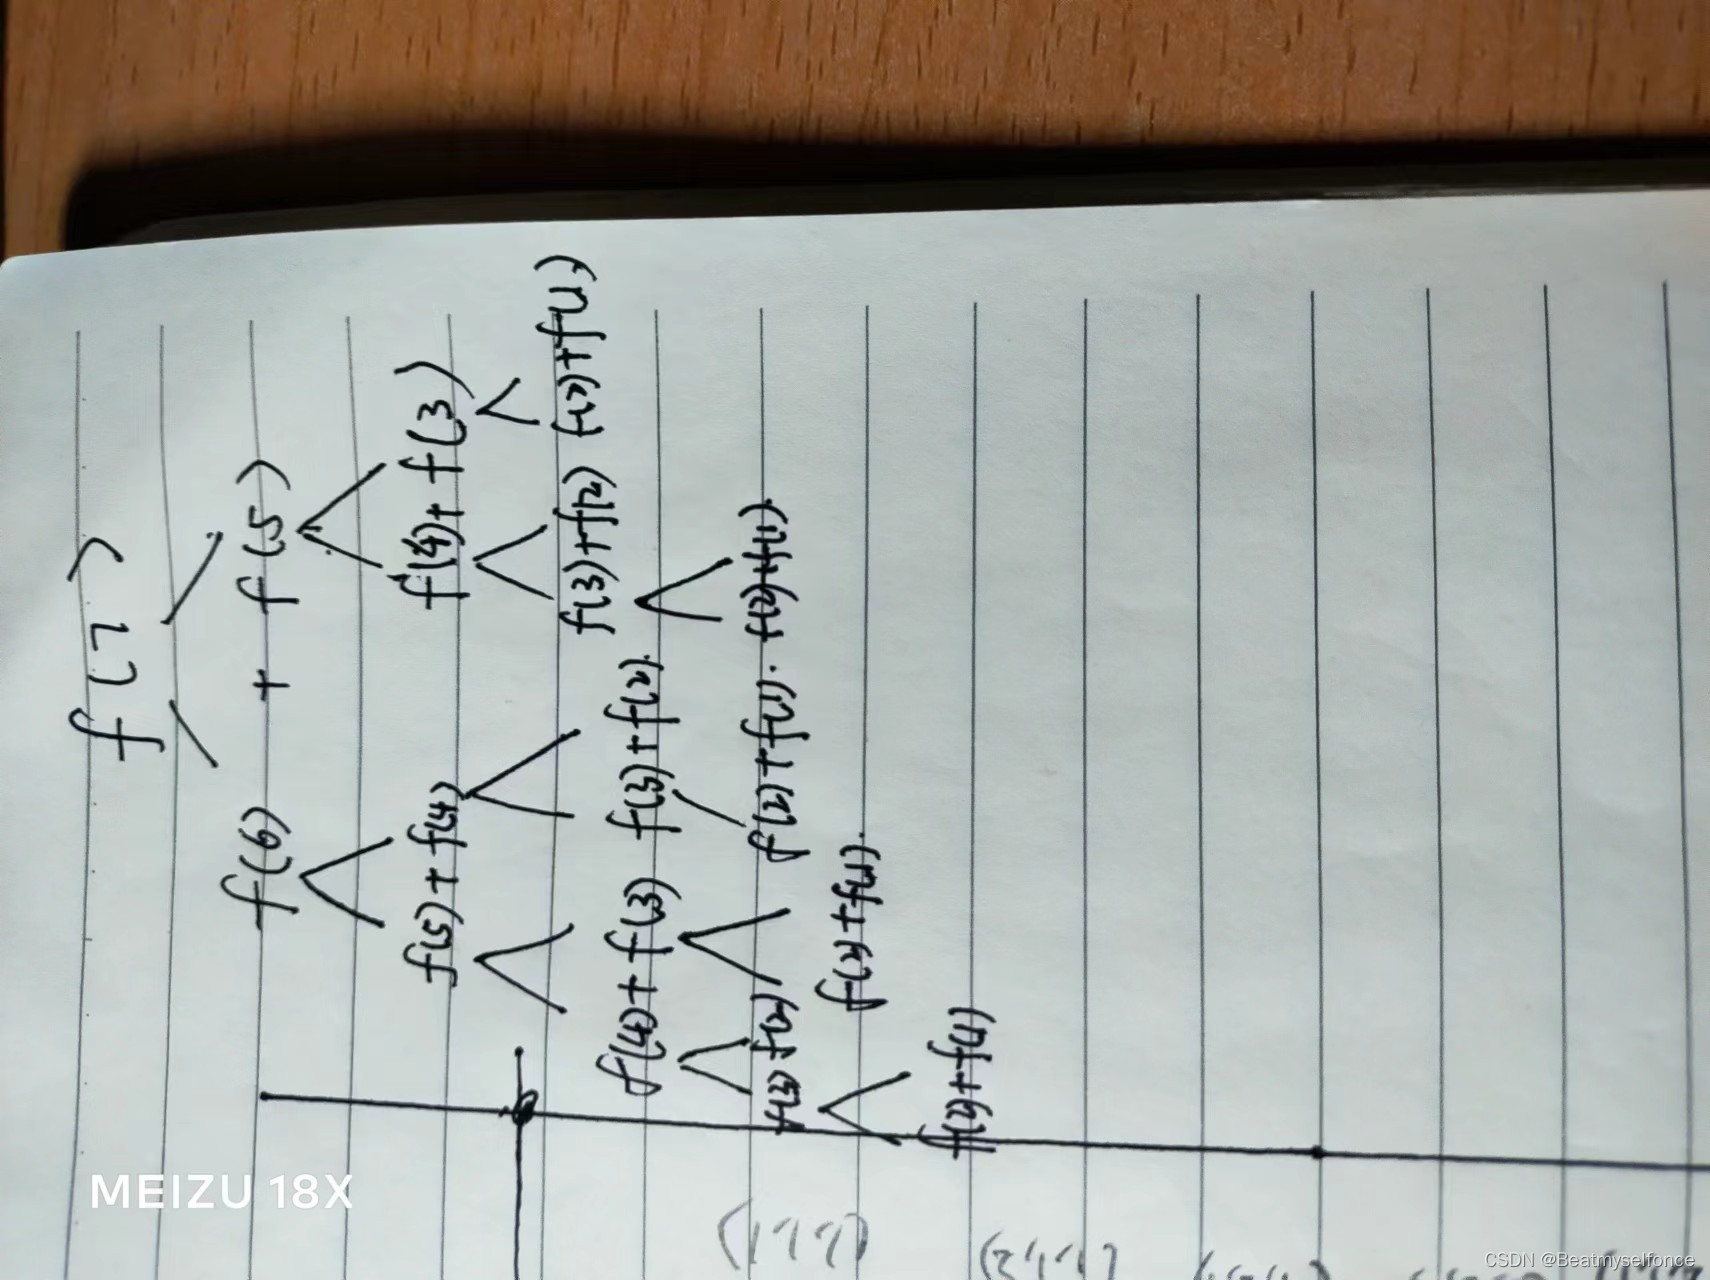 f(7)
f(6) + f(5)
f(5) + f(4) f(4) + f(3)
f(4) + f(3) f(3) + f(2) f(3) + f(2) f(2) + f(1)
f(3) f(2) f(2) + f(1) f(2) + f(1)
f(2) + f(1)
f(2) + f(1)
MEIZU 18X
CSDN @Beatmyselfonce